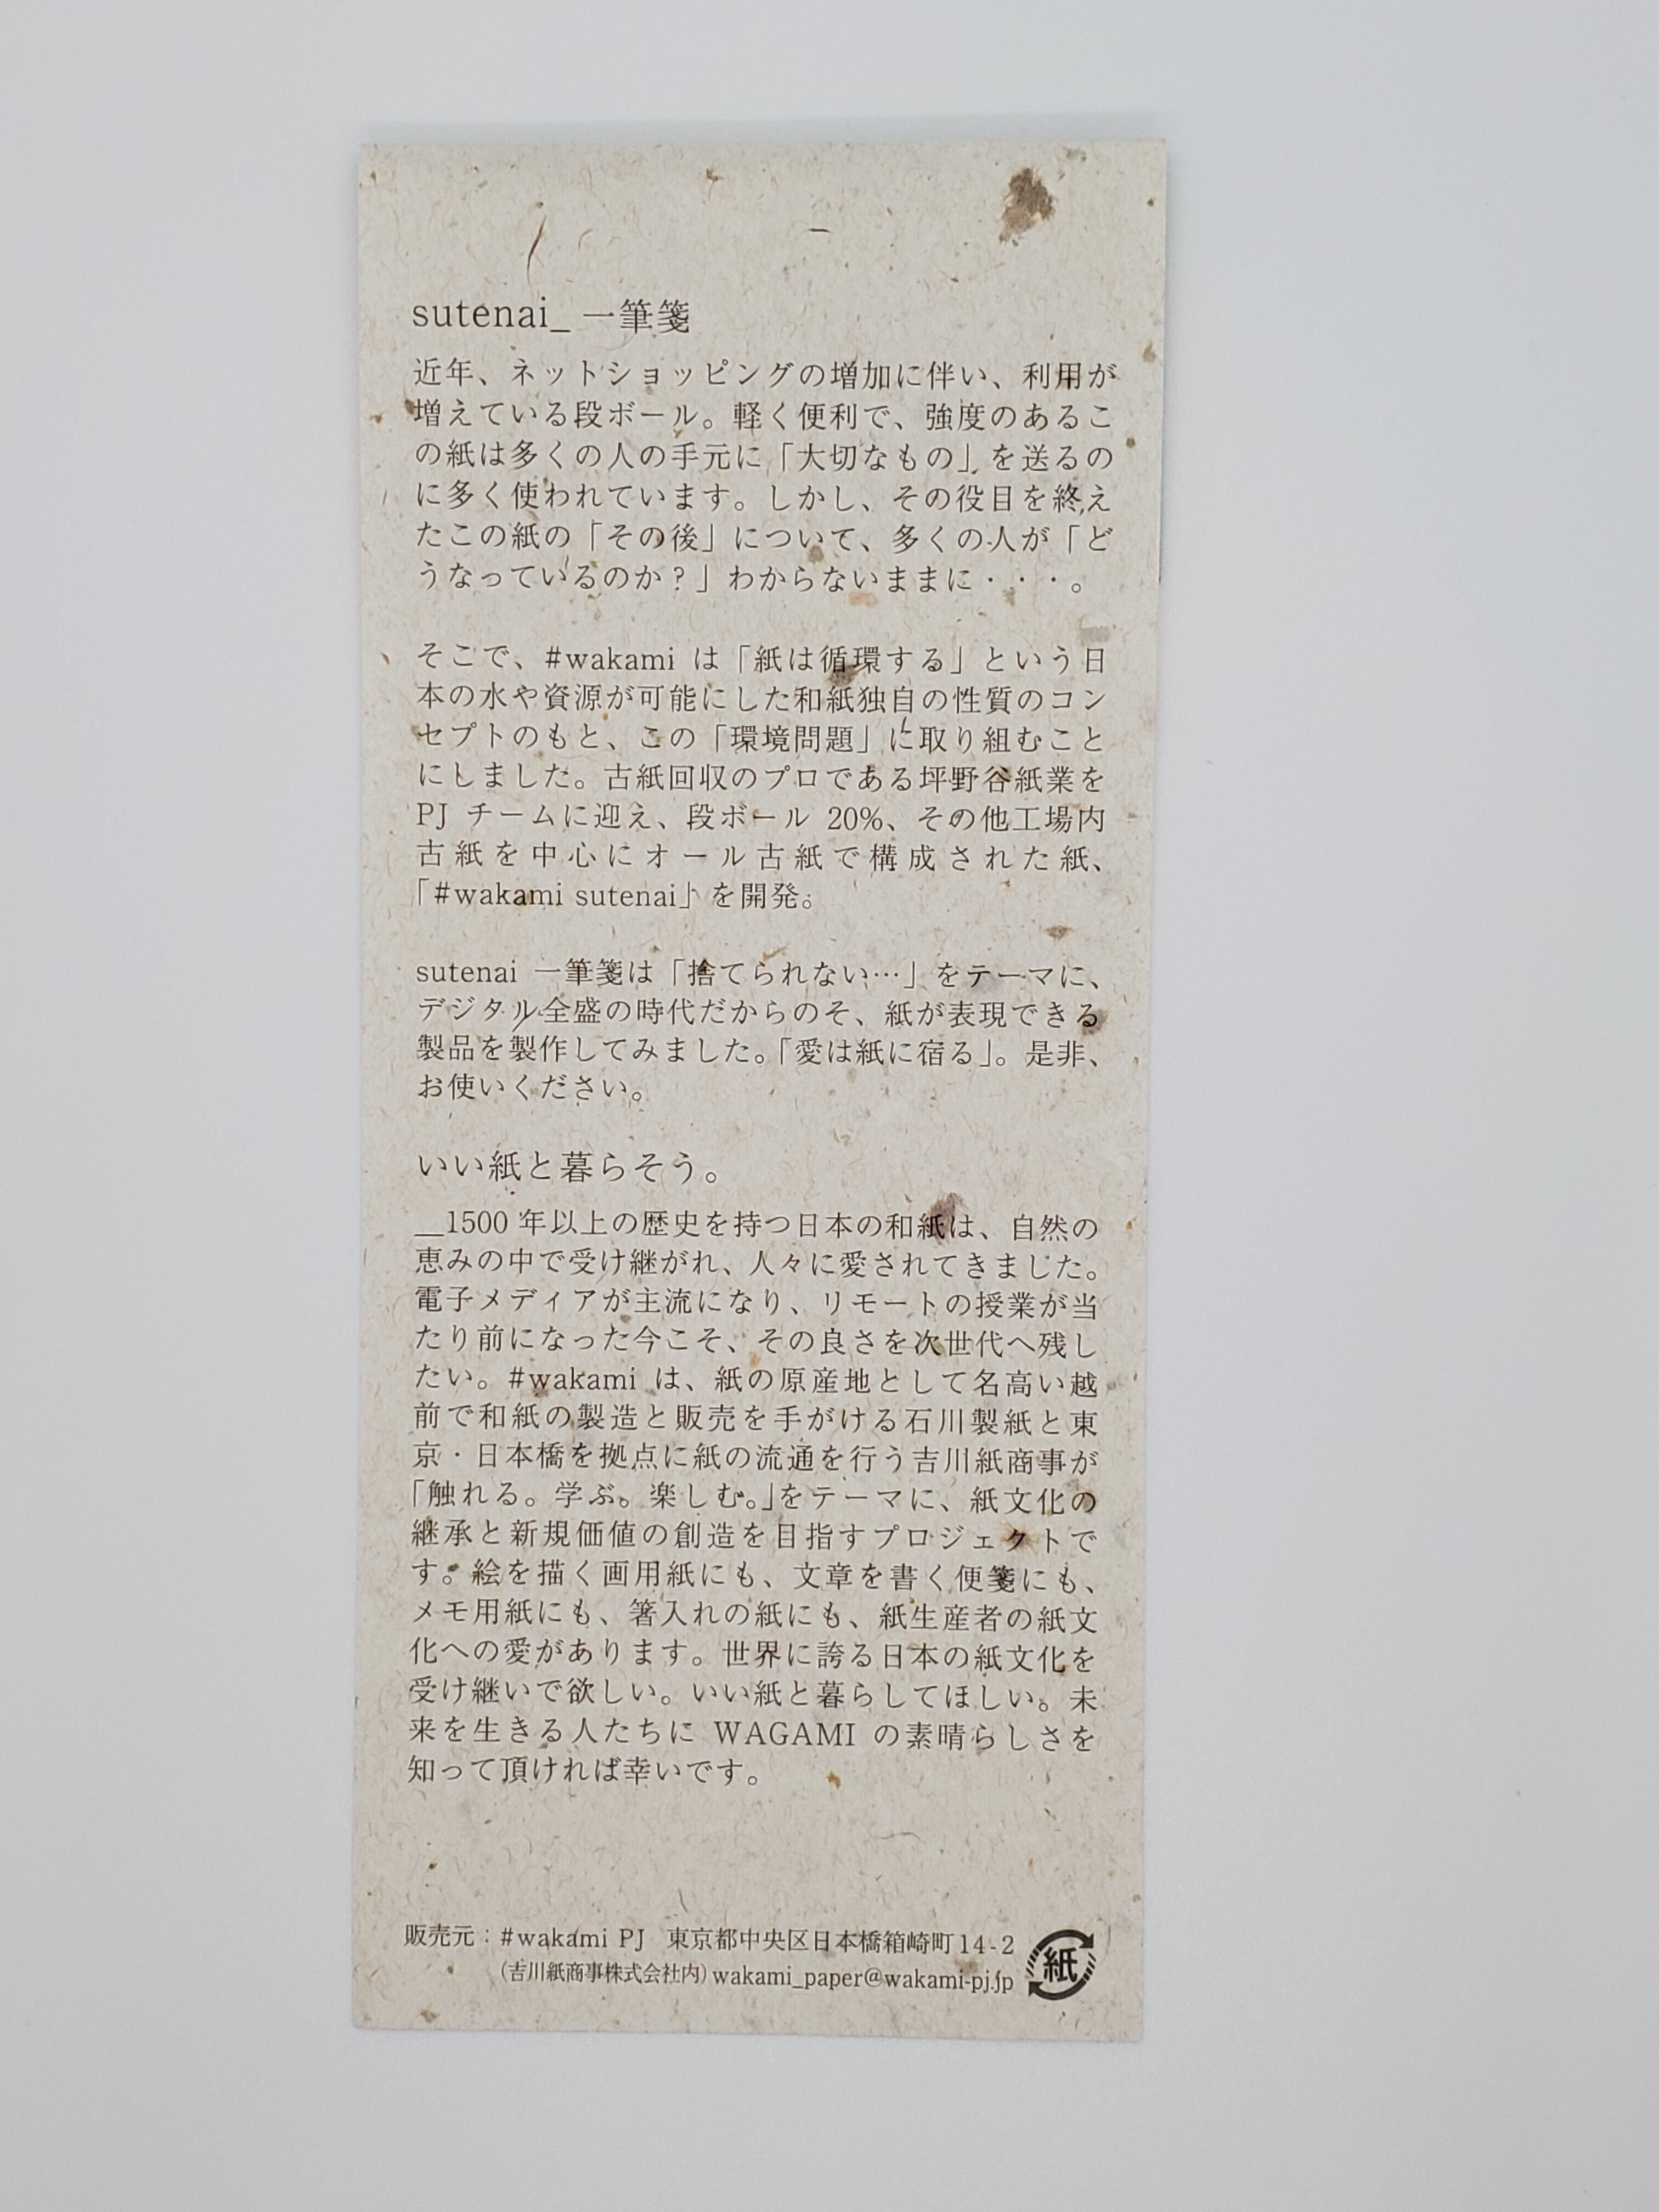 sutenai_ 一筆箋
近年、ネットショッピングの増加に伴い、利用が
増えている段ボール。軽く便利で、強度のあるこ
の紙は多くの人の手元に「大切なもの」を送るの
に多く使われています。しかし、その役目を終え
たこの紙の「その後」について、多くの人が「ど
うなっているのか？」わからないままに・・・。
そこで、#wakami は「紙は循環する」という日
本の水や資源が可能にした和紙独自の性質のコン
セプトのもと、この「環境問題」に取り組むこと
にしました。古紙回収のプロである坪野谷紙業を
PJ チームに迎え、段ボール 20%、その他工場内
古紙を中心にオール古紙で構成された紙、
「#wakami sutenai」を開発。
sutenai 一筆箋は「捨てられない…」をテーマに、
デジタル全盛の時代だからのそ、紙が表現できる
製品を製作してみました。「愛は紙に宿る」。是非、
お使いください。
いい紙と暮らそう。
__1500 年以上の歴史を持つ日本の和紙は、自然の
恵みの中で受け継がれ、人々に愛されてきました。
電子メディアが主流になり、リモートの授業が当
たり前になった今こそ、その良さを次世代へ残し
たい。#wakami は、紙の原産地として名高い越
前で和紙の製造と販売を手がける石川製紙と東
京・日本橋を拠点に紙の流通を行う吉川紙商事が
「触れる。学ぶ。楽しむ。」をテーマに、紙文化の
継承と新規価値の創造を目指すプロジェクトで
す。絵を描く画用紙にも、文章を書く便箋にも、
メモ用紙にも、箸入れの紙にも、紙生産者の紙文
化への愛があります。世界に誇る日本の紙文化を
受け継いで欲しい。いい紙と暮らしてほしい。未
来を生きる人たちに WAGAMI の素晴らしさを
知って頂ければ幸いです。
販売元：#wakami PJ 東京都中央区日本橋箱崎町14-2
（吉川紙商事株式会社内）wakami_paper@wakami-pj.jp
紙